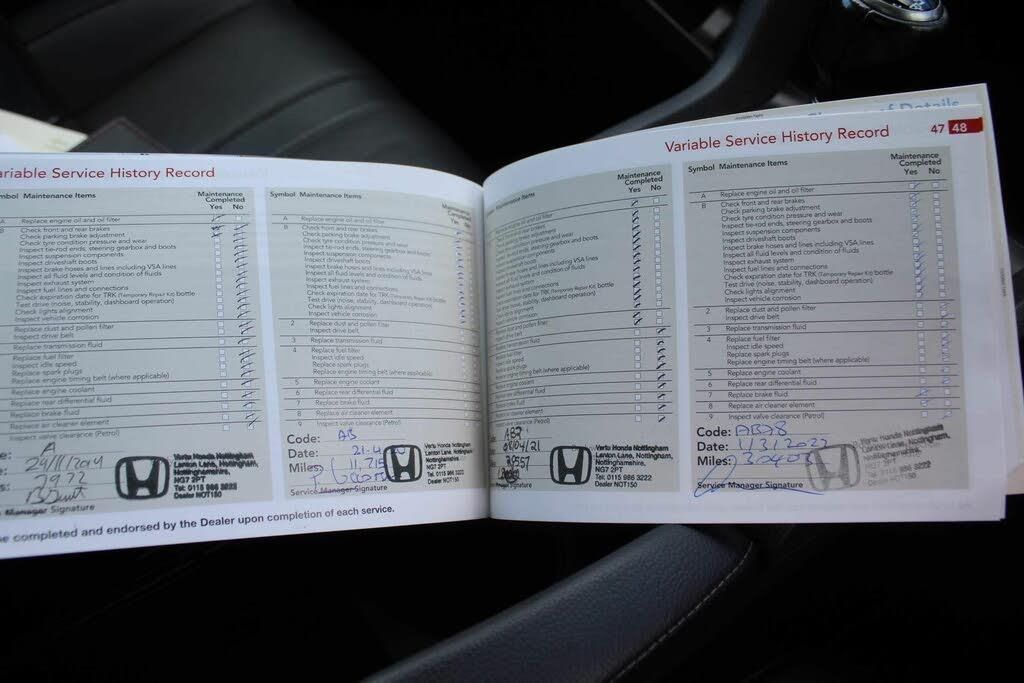 Variable Service History Record
Symbol Maintenance Items
Maintenance
Completed
Yes No
A Replace engine oil and oil filter
B Check front and rear brakes
Check parking brake adjustment
Check tyre condition pressure and wear
Inspect tie-rod ends, steering gearbox and boots
Inspect suspension components
Inspect driveshaft boots
Inspect brake hoses and lines including VSA lines
Inspect all fluid levels and condition of fluids
Inspect exhaust system
Inspect fuel lines and connections
Check expiration date for TRK (Temporary Repair Kit) bottle
Test drive (noise, stability, dashboard operation)
Check lights alignment
Inspect vehicle corrosion
Replace dust and pollen filter
Inspect drive belt
Replace transmission fluid
Replace fuel filter
Inspect idle speed
Replace spark plugs
Replace engine timing belt (where applicable)
Replace engine coolant
Replace rear differential fluid
Replace brake fluid
Replace air cleaner element
Inspect valve clearance (Petrol)
A
29/11/2019
7972
Manager Signature
Vertu Honda Nottingham
Lenton Lane, Nottingham,
Nottinghamshire,
NG7 2PT
Tel: 0115 986 3222
Dealer NOT150
be completed and endorsed by the Dealer upon completion of each service.
Symbol Maintenance Items
Maintenance
Completed
Yes No
A Replace engine oil and oil filter
B Check front and rear brakes
Check parking brake adjustment
Check tyre condition pressure and wear
Inspect tie-rod ends, steering gearbox and boots
Inspect suspension components
Inspect driveshaft boots
Inspect brake hoses and lines including VSA lines
Inspect all fluid levels and condition of fluids
Inspect exhaust system
Inspect fuel lines and connections
Check expiration date for TRK (Temporary Repair Kit) bottle
Test drive (noise, stability, dashboard operation)
Check lights alignment
Inspect vehicle corrosion
2 Replace dust and pollen filter
Inspect drive belt
3 Replace transmission fluid
4 Replace fuel filter
Inspect idle speed
Replace spark plugs
Replace engine timing belt (where applicable)
5 Replace engine coolant
6 Replace rear differential fluid
7 Replace brake fluid
8 Replace air cleaner element
9 Inspect valve clearance (Petrol)
Code: AB
Date: 21.4
Miles: 11,715
Service Manager Signature
Vertu Honda Nottingham
Lenton Lane, Nottingham,
Nottinghamshire,
NG7 2PT
Tel: 0115 986 3222
Dealer NOT150
Maintenance Items
Maintenance
Completed
Yes No
engine oil and oil filter
and rear brakes
brake adjustment
condition pressure and wear
ends, steering gearbox and boots
components
boots
hoses and lines including VSA lines
levels and condition of fluids
system
and connections
date for TRK (Temporary Repair Kit) bottle
stability, dashboard operation)
alignment
corrosion
dust and pollen filter
belt
transmission fluid
filter
speed
plugs
timing belt (where applicable)
engine coolant
differential fluid
fluid
cleaner element
clearance (Petrol)
AB2
08/04/21
Signature
Vertu Honda Nottingham
Lenton Lane, Nottingham,
Nottinghamshire,
NG7 2PT
Tel: 0115 986 3222
Dealer NOT150
of Details
Variable Service History Record 47 48
Symbol Maintenance Items
Maintenance
Completed
Yes No
A Replace engine oil and oil filter
B Check front and rear brakes
Check parking brake adjustment
Check tyre condition pressure and wear
Inspect tie-rod ends, steering gearbox and boots
Inspect suspension components
Inspect driveshaft boots
Inspect brake hoses and lines including VSA lines
Inspect all fluid levels and condition of fluids
Inspect exhaust system
Inspect fuel lines and connections
Check expiration date for TRK (Temporary Repair Kit) bottle
Test drive (noise, stability, dashboard operation)
Check lights alignment
Inspect vehicle corrosion
2 Replace dust and pollen filter
Inspect drive belt
3 Replace transmission fluid
4 Replace fuel filter
Inspect idle speed
Replace spark plugs
Replace engine timing belt (where applicable)
5 Replace engine coolant
6 Replace rear differential fluid
7 Replace brake fluid
8 Replace air cleaner element
9 Inspect valve clearance (Petrol)
Code:
Date: 1/3/2022
Miles:
Service Manager Signature
Vertu Honda Nottingham
Lenton Lane, Nottingham,
Nottinghamshire,
NG7 2PT
Tel: 0115 986 3222
Dealer NOT150